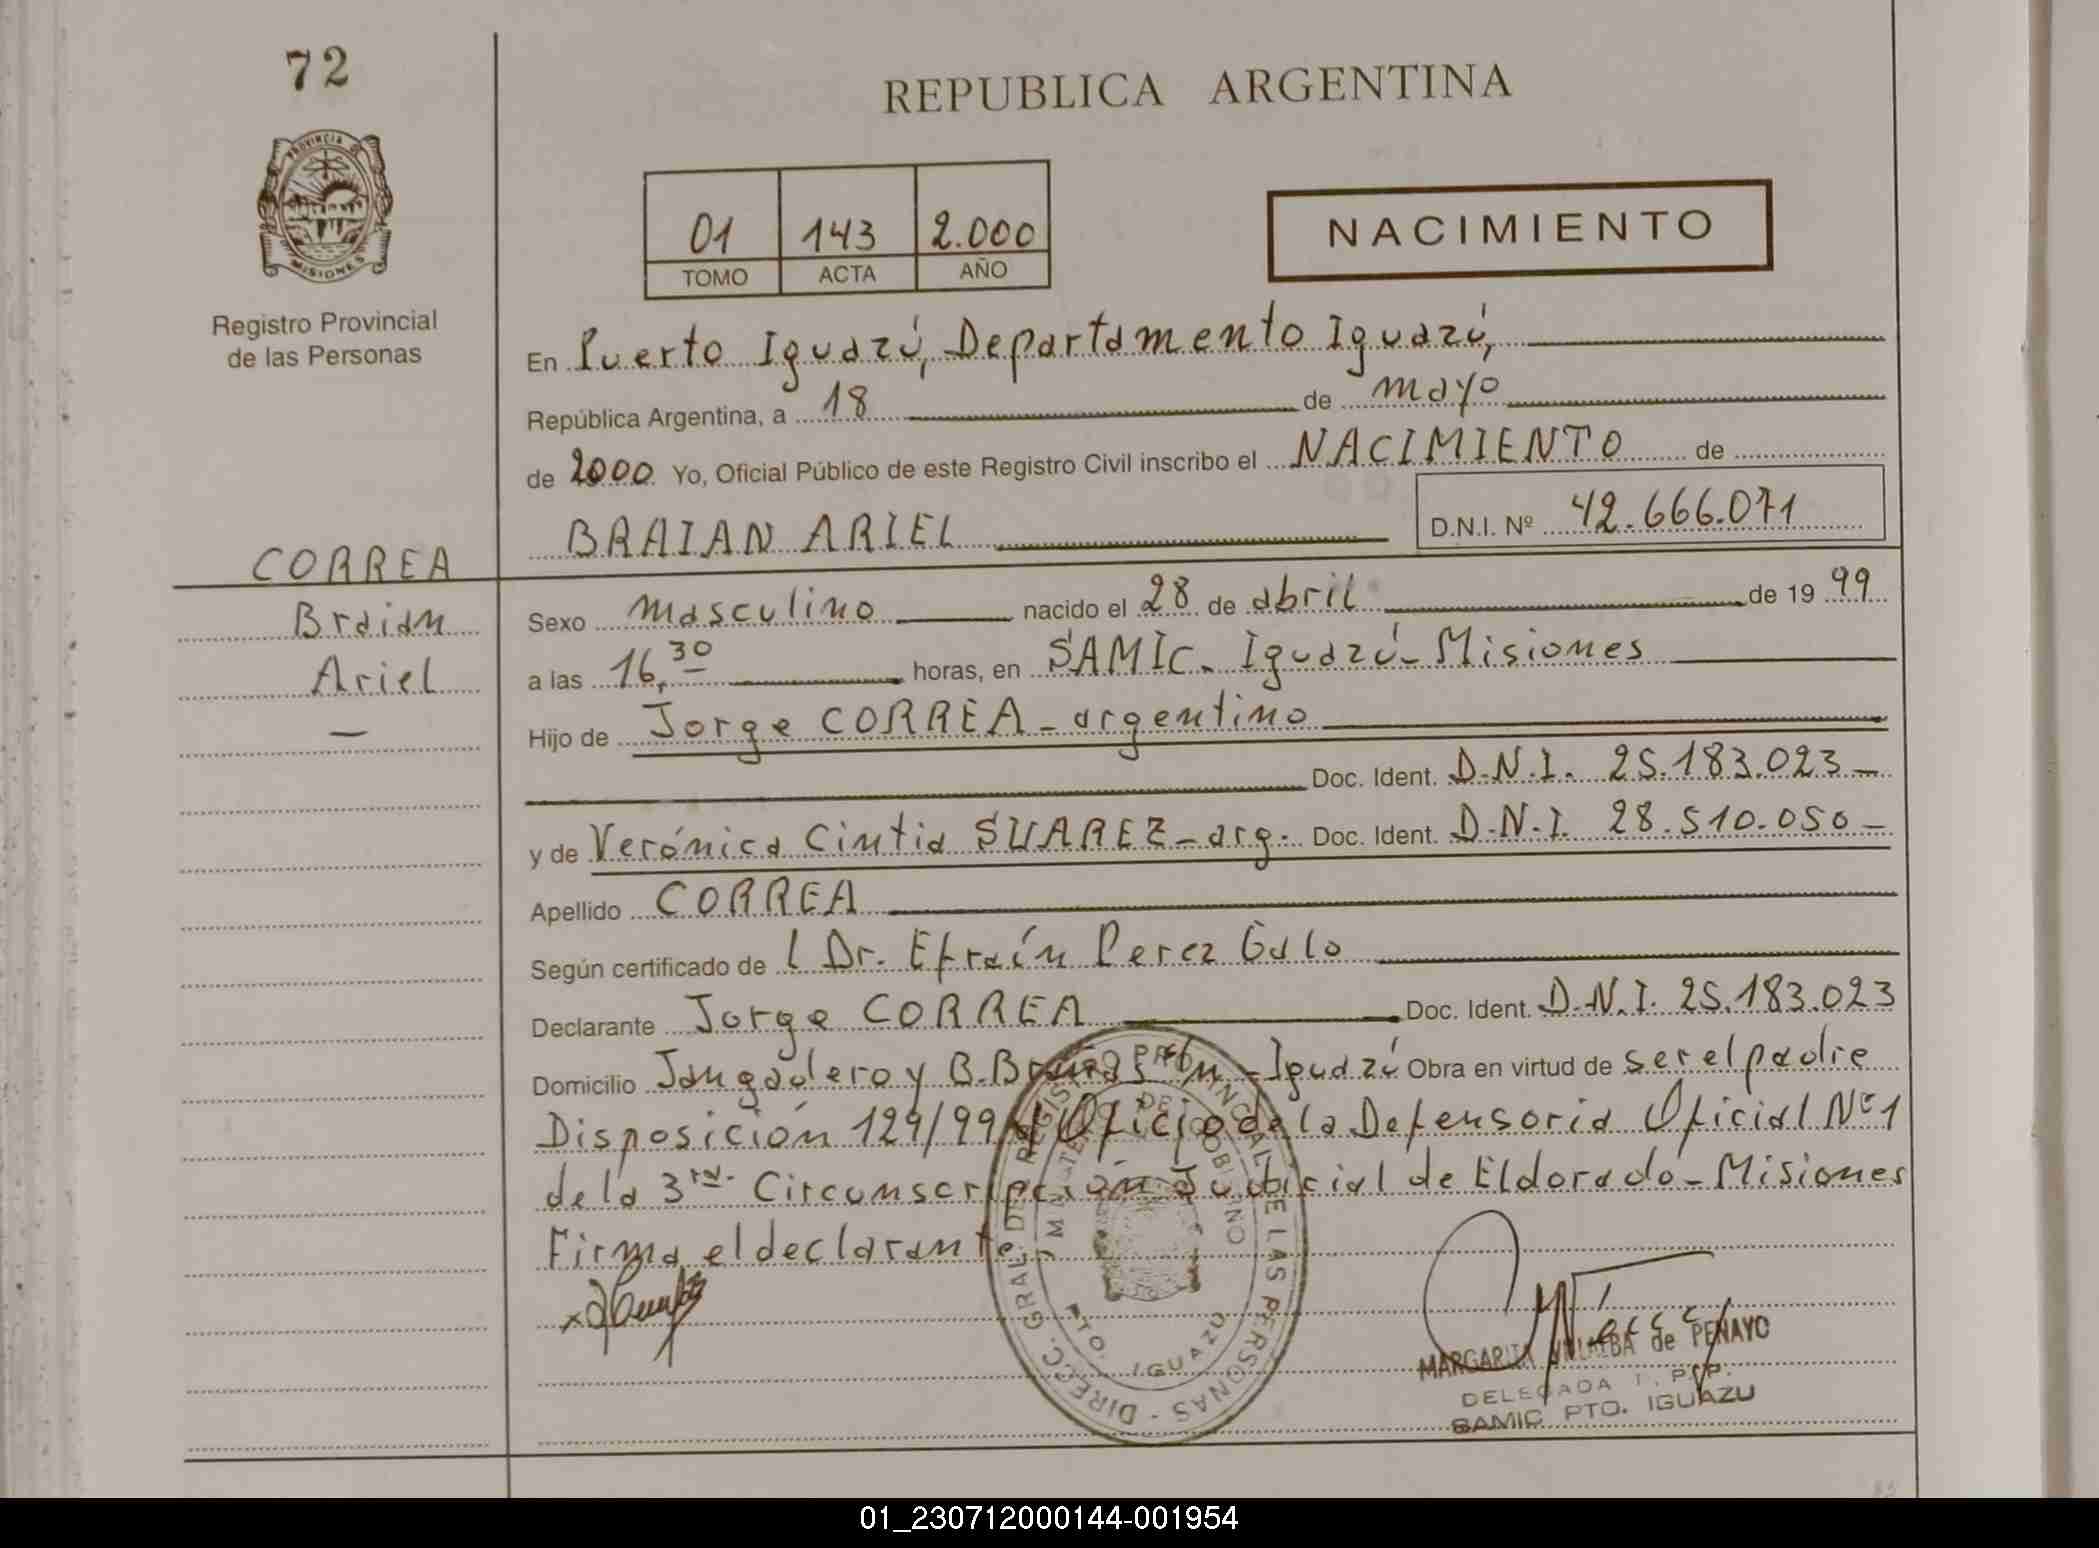 72
REPUBLICA ARGENTINA
PROVINCIA DE
MISIONES
Registro Provincial
de las Personas
01 143 2.000
TOMO ACTA AÑO
NACIMIENTO
En Puerto Iguazú, Departamento Iguazú,
República Argentina, a 18 de mayo
de 2000 Yo, Oficial Público de este Registro Civil inscribo el NACIMIENTO de
BRAIAN ARIEL D.N.I. Nº 42.666.071
CORREA
Braian
Ariel
—
Sexo masculino nacido el 28 de abril de 19 99
a las 16,30 horas, en SAMIC. Iguazú - Misiones
Hijo de Jorge CORREA - argentino
Doc. Ident. D.N.I. 25.183.023 -
y de Verónica Cintia SUAREZ - arg. Doc. Ident. D.N.I. 28.510.050 -
Apellido CORREA
Según certificado de l Dr. Efraín Perez Galo
Declarante Jorge CORREA Doc. Ident. D.N.I. 25.183.023
Domicilio Jangadero y B. Brañas s/n - Iguazú Obra en virtud de ser el padre
Disposición 129/99 Oficio de la Defensoria Oficial Nº 1
de la 3ra. Circunscripción Judicial de Eldorado - Misiones
Firma el declarante
DIRECC. GRAL. DE REGISTRO PROVINCIAL DE LAS PERSONAS
DE GOBIERNO
PTO. IGUAZU
MARGARITA VILLALBA de PENAYO
DELEGADA
SAMIC PTO. IGUAZU
01_230712000144-001954